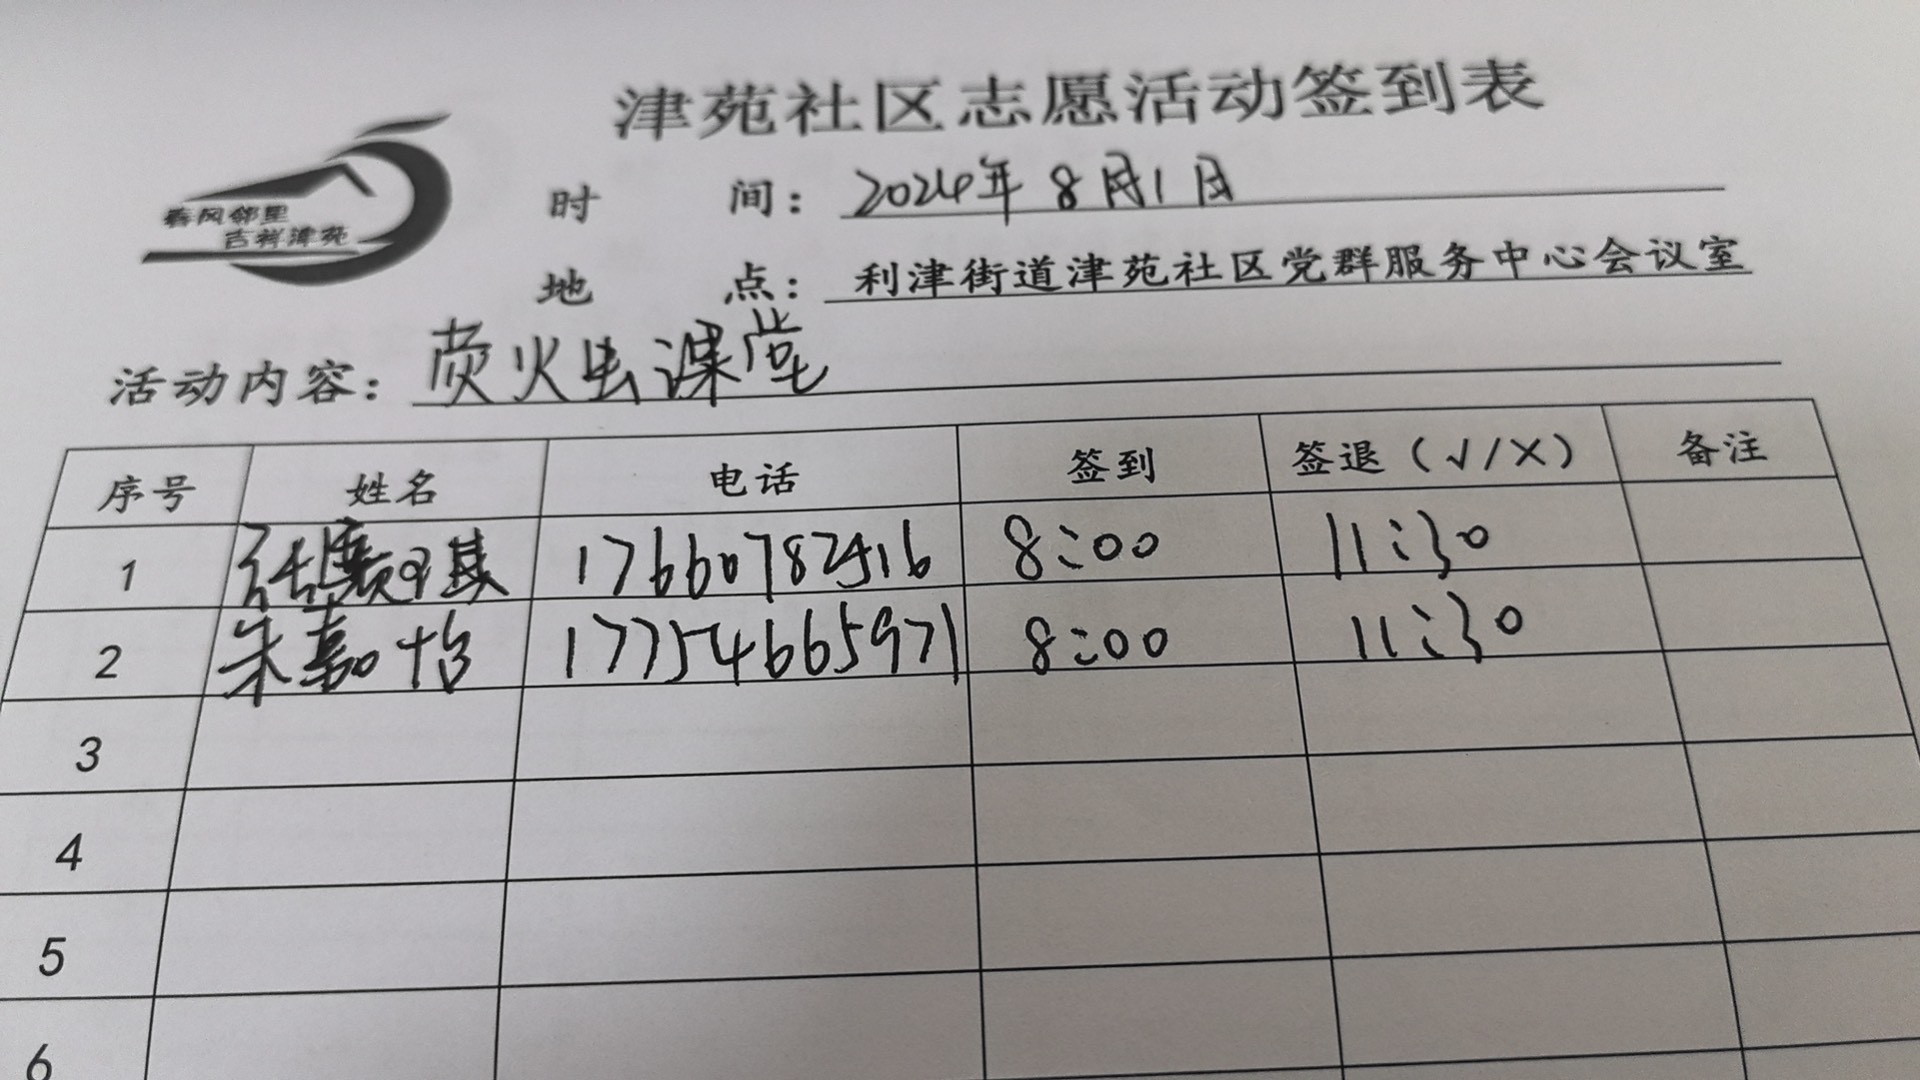 津苑社区志愿活动签到表
春风邻里
吉祥津苑
时 间：2024年8月1日
地 点：利津街道津苑社区党群服务中心会议室
活动内容：荧火虫课堂
序号 姓名 电话 签到 签退（√/×） 备注
1 17660782516 8:00 11:30
2 朱嘉怡 17754665971 8:00 11:30
3
4
5
6